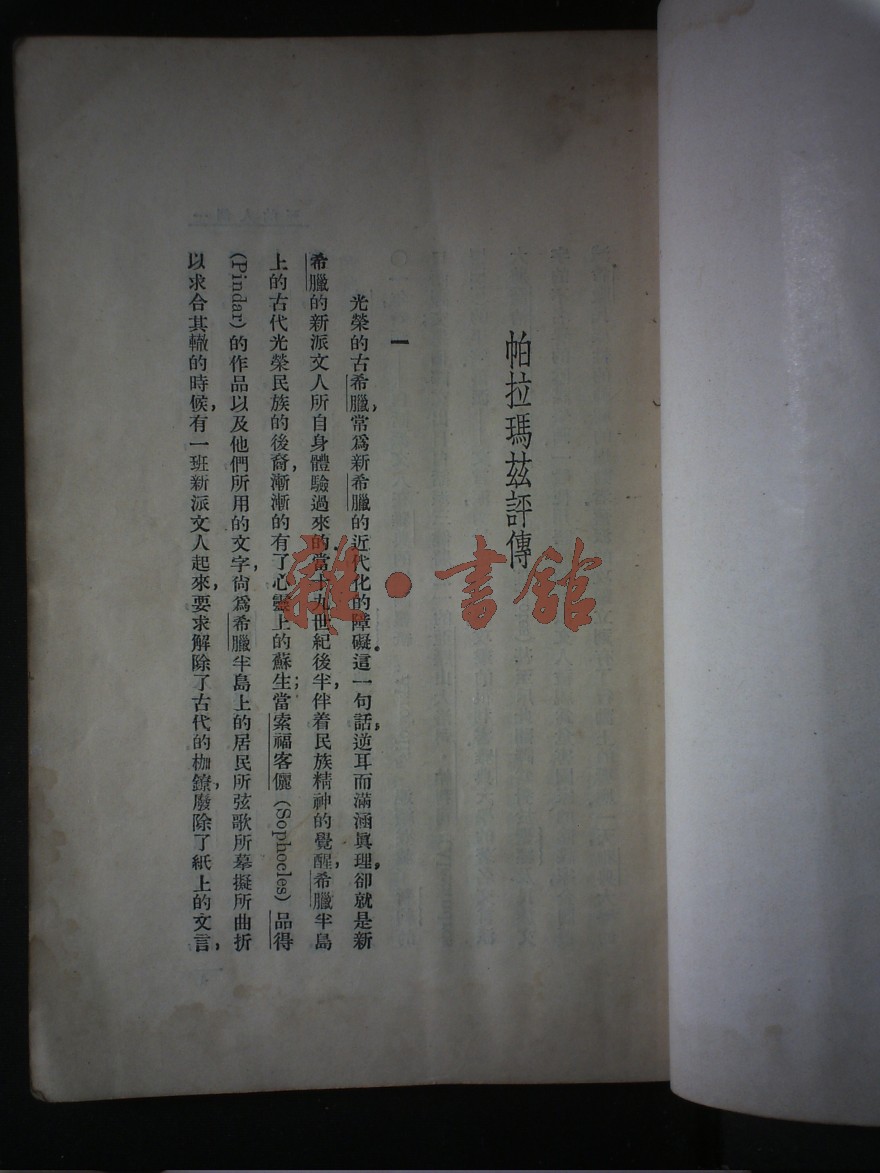 帕拉瑪茲評傳
一
光榮的古希臘,常爲新希臘的近代化的障礙。這一句話,逆耳而滿涵眞理,卻就是新
希臘的新派文人所自身體驗過來的。當十九世紀後半,伴着民族精神的覺醒,希臘半島
上的古代光榮民族的後裔,漸漸的有了心靈上的蘇生;當索福客儷(Sophocles)品得
(Pindar)的作品以及他們所用的文字,尙爲希臘半島上的居民所弦歌所摹擬所曲折
以求合其轍的時候,有一班新派文人起來,要求解除了古代的枷鐐,廢除了紙上的文言,
雜·書館